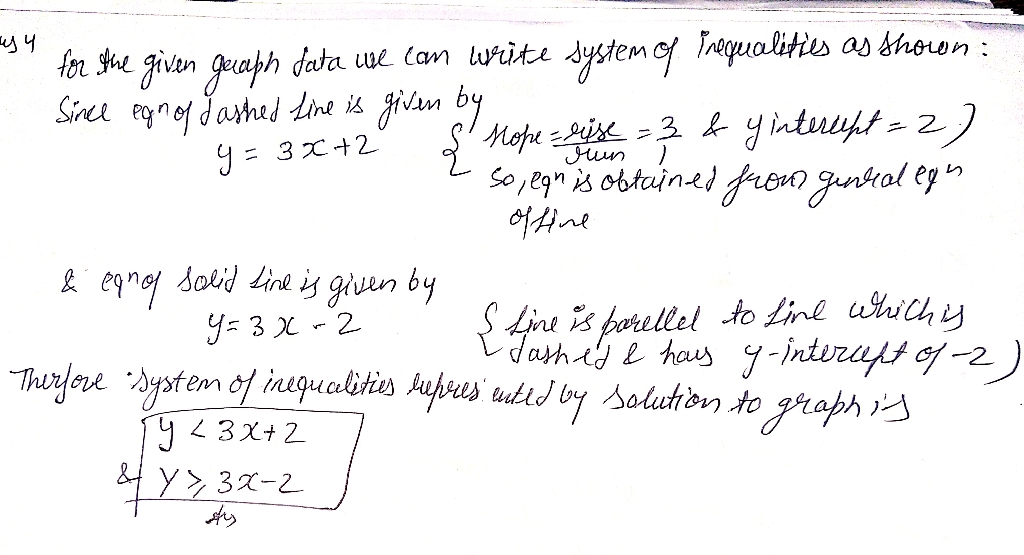 for the given graph data we can write system of Inequalities as shown :
Since eqn of dashed line is given by
y = 3x+2 { slope = rise/run = 3 & y intercept = 2 )
so, eqn is obtained from genral eqn
of line
& eqn of solid line is given by
y = 3x - 2 { line is parellel to line which is
dashed & havs y-intercept of -2 )
Therfore system of inequalities represented by solution to graph is
y < 3x+2
& y ≥ 3x-2